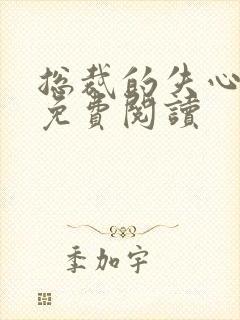 总裁的失心
免費閱讀
季加宇